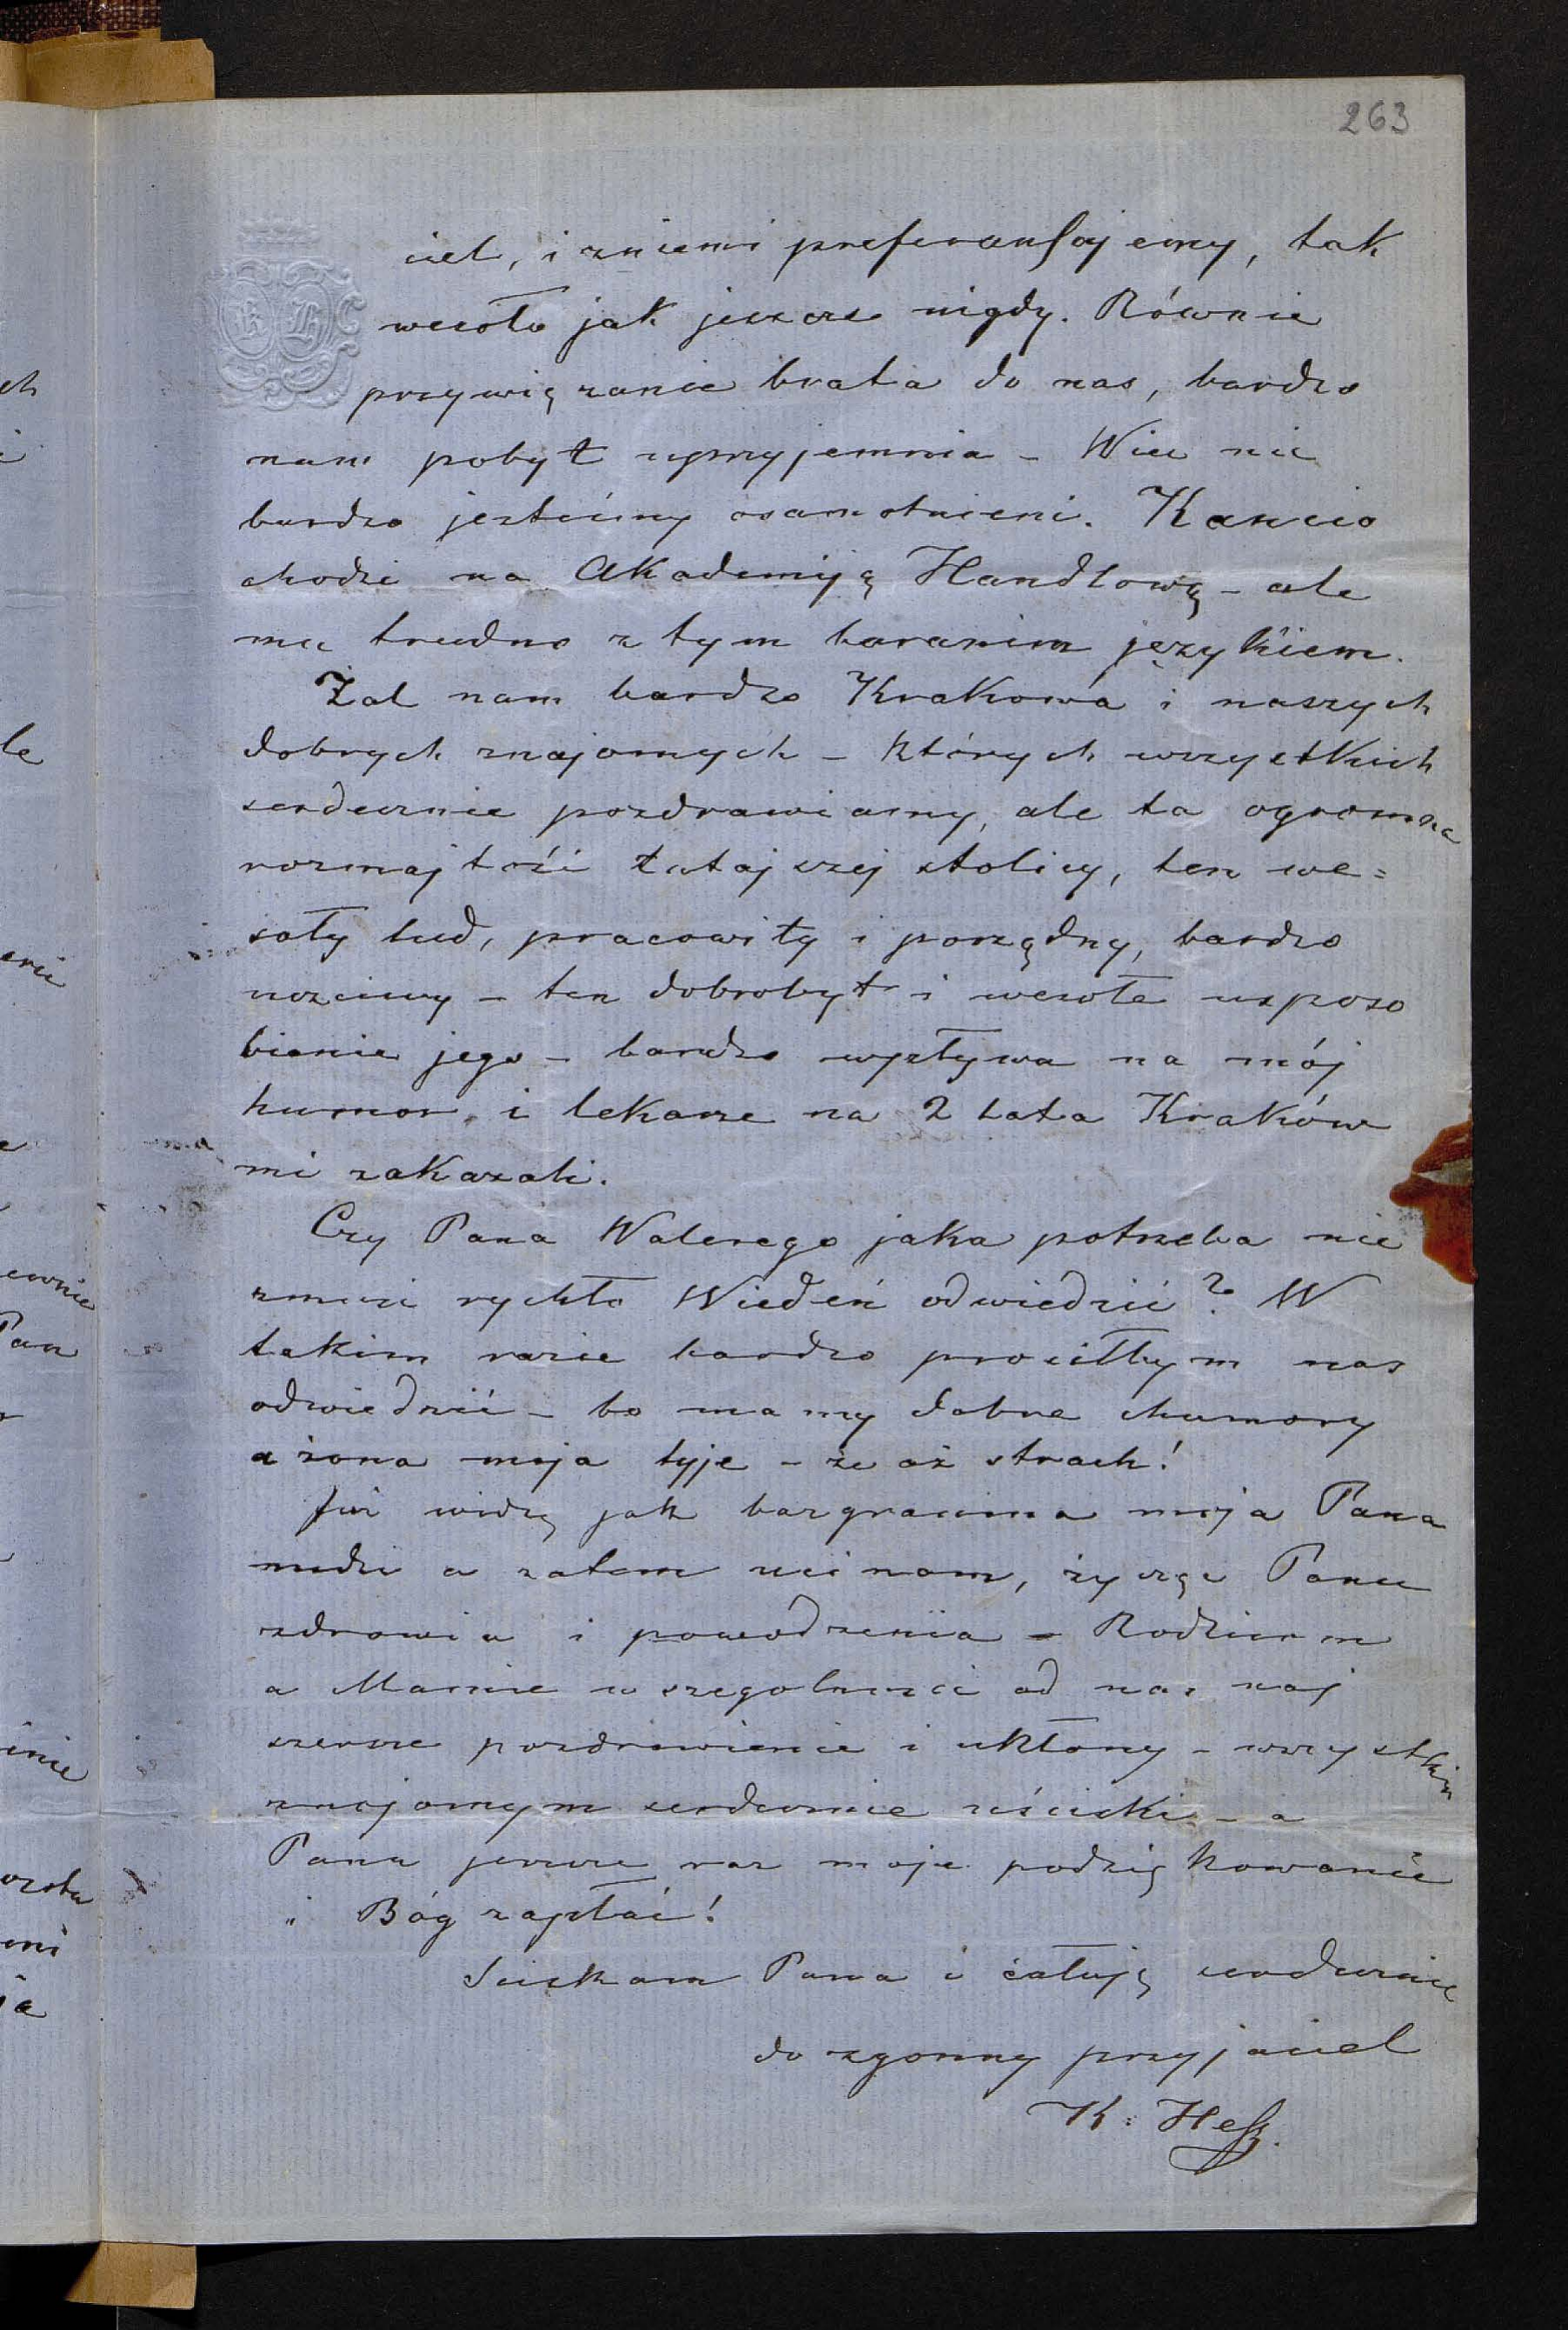 263
ciel, i zniemi preferansujemy, tak
wesoło jak jeszcze nigdy. Równie
przywięzanie brata do nas, bardzo
nam pobyt uprzyjemnia – Wiec nie
bardzo jesteśmy osamotnieni. Kancio
chodzi na Akademiją Handlową – ale
mu trudno z tym baranim językiem.
Żal nam bardzo Krakowa i naszych
dobrych znajomych – których wszystkich
serdecznie pozdrawiamy, ale ta ogromna
rozmajtość tutajszej stolicy, ten we=
soły lud, pracowity i porządny, bardzo
uczciwy – ten dobrobyt i wesołe usposo
bienie jego – bardzo wpływa na mój
humor, i lekarze na 2 lata Kraków
mi zakazali.
Czy Pana Walerego jaka potrzeba nie
zmusi rychło Wiedeń odwiedzić? W
takim razie bardzo prosiłbym nas
odwiedzić – bo mamy dobre chumory
a żona moja tyje – że aż strach!
Już widzę jak bazgranina moja Pana
nudzi a zatem ucinam, życzęc Panu
zdrowia i powodzenia – Rodzicom
a Mamie w szegolności od nas naj
szersze pozdrowienie i ukłony – wszystkim
znajomym serdecznie uściski – a
Panu jeszcze raz moje podziękowanie
i Bóg zapłać!
Sciskam Pana i całuję serdecznie
do zgonny przyjaciel
K: Heſz.
ch
le
ewnie
Pan